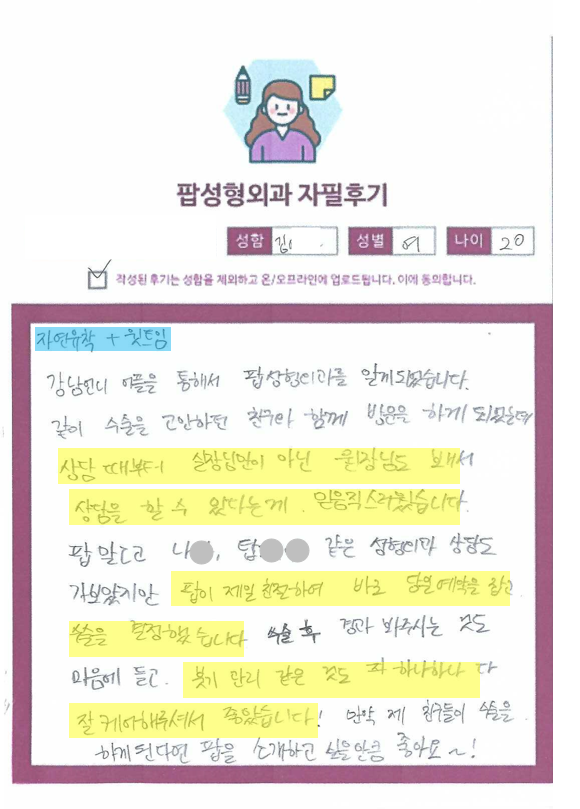 팝성형외과 자필후기
성함 김 성별 여 나이 20
작성된 후기는 성함을 제외하고 온/오프라인에 업로드됩니다. 이에 동의합니다.
자연유착 + 윗트임
강남언니 어플을 통해서 팝성형외과를 알게되었습니다.
같이 수술을 고안하던 친구와 함께 방문을 하게 되었는데
상담 때부터 실장님만이 아닌 원장님도 뵈서
상담을 할 수 있다는게 믿음직스러웠습니다.
팝 말고 나 , 탑 같은 성형외과 상담도
가보았지만 팝이 제일 친절하여 바로 당일예약을 잡고
수술을 결정했습니다 수술 후 경과 봐주시는 것도
마음에 들고. 붓기 관리 같은 것도 하나하나 다
잘 케어해주셔서 좋았습니다! 만약 제 친구들이 수술을
하게된다면 팝을 소개하고 싶을만큼 좋아요~!